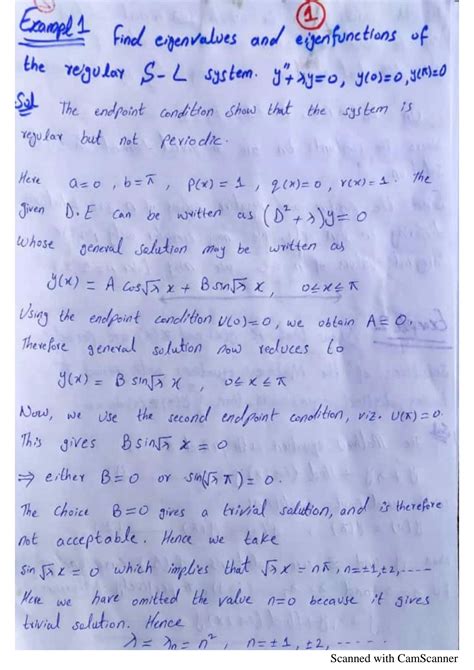 1
Exampl 1 Find eigenvalues and eigenfunctions of
the reigular S-L system. y"+λy=0, y(0)=0, y(π)=0
Sol The endpoint condition show that the system is
regular but not periodic.
Here a=0, b=π, p(x)=1, q(x)=0, r(x)=1. The
given D.E can be written as (D²+λ)y=0
whose general solution may be written as
y(x) = A cos√λ x + B sin√λ x, 0≤x≤π
Using the endpoint condition U(0)=0, we obtain A=0.
Therefore general solution now reduces to
y(x) = B sin√λ x, 0≤x≤π
Now, we use the second endpoint condition, viz. U(π)=0.
This gives B sin√λ x = 0
⇒ either B=0 or sin(√λ π)=0.
The choice B=0 gives a trivial solution, and is therefore
not acceptable. Hence we take
sin √λ x = 0 which implies that √λ x = nπ, n=±1,±2,----
Here we have omitted the value n=0 because it gives
trivial solution. Hence
λ = λn = n², n=±1, ±2, -----
Scanned with CamScanner